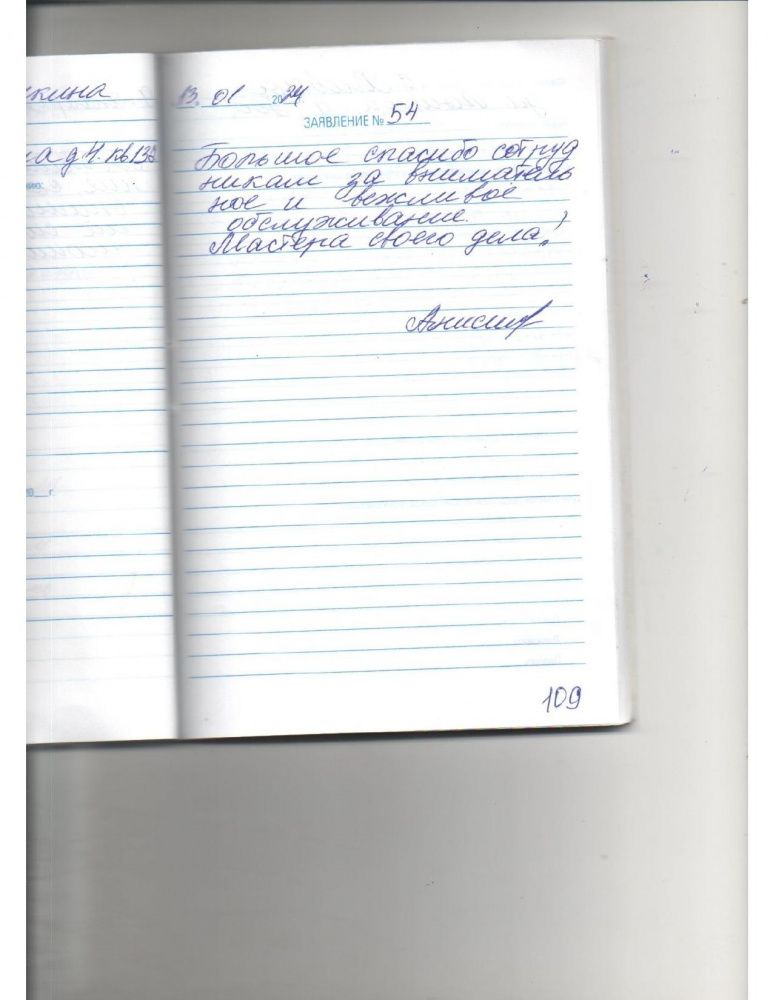 кина
а д 4. кв 132
20__г.
13. 01 2024
ЗАЯВЛЕНИЕ № 54
Большое спасибо сотруд
никам за вниматель
ное и вежливое
обслуживание.
Мастера своего дела!
109